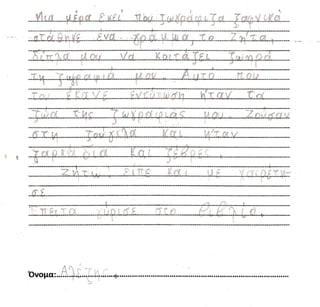 Μια μέρα εκεί που ζωγράφιζα ξαφνικά
στάθηκε ένα γράμμα, το Ζήτα,
δίπλα μου να κοιτάζει ζωηρά
τη ζωγραφιά μου. Αυτό που
του έκανε εντύπωση ήταν τα
ζώα της ζωγραφιάς μου. Ζούσαν
στη ζούγκλα και ήταν
ζαρκάδια και ζέβρες.
Ζήτω! είπε και με χαιρέτη-
σε
Έπειτα γύρισε στο βιβλίο.
Όνομα: Αλέξης